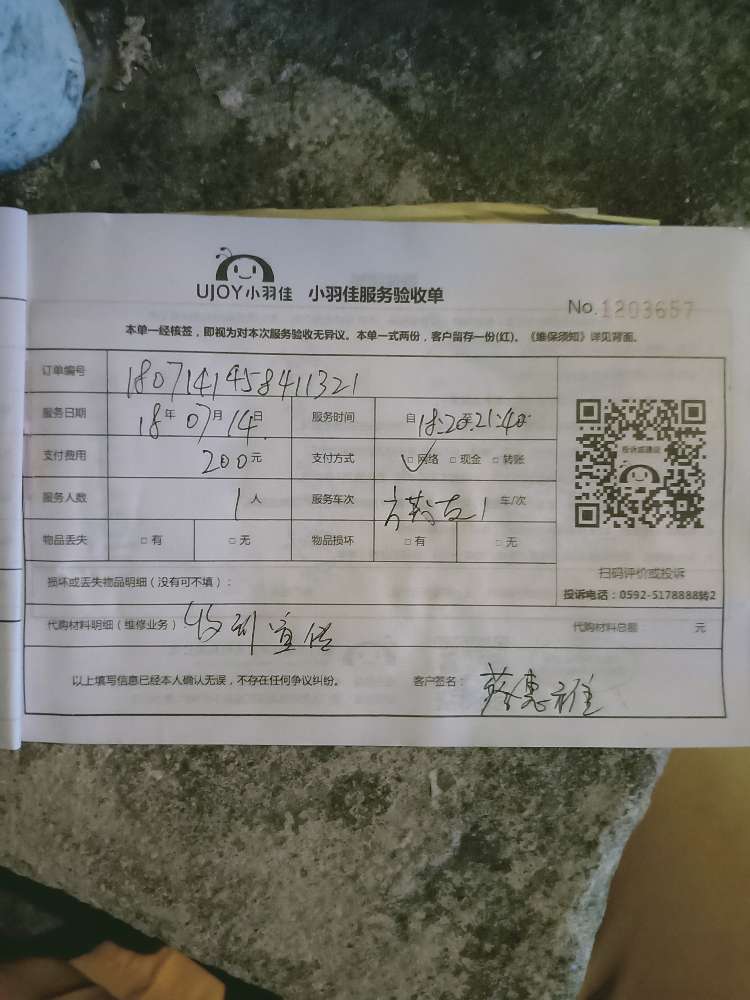 UJOY小羽佳 小羽佳服务验收单
No.1203657
本单一经核签，即视为对本次服务验收无异议。本单一式两份，客户留存一份(红)。《维保须知》详见背面。
订单编号 1807141458411321
服务日期 18年07月14日 服务时间 自18:20至21:40
支付费用 200元 支付方式 ☑网络 □现金 □转账
投诉或建议
服务人数 1人 服务车次 车/次
物品丢失 □有 □无 物品损坏 □有 □无
扫码评价或投诉
损坏或丢失物品明细（没有可不填）：
投诉电话：0592-5178888转2
代购材料明细（维修业务） 收到宣传 代购材料总额 元
以上填写信息已经本人确认无误，不存在任何争议纠纷。 客户签名： 蔡惠雅